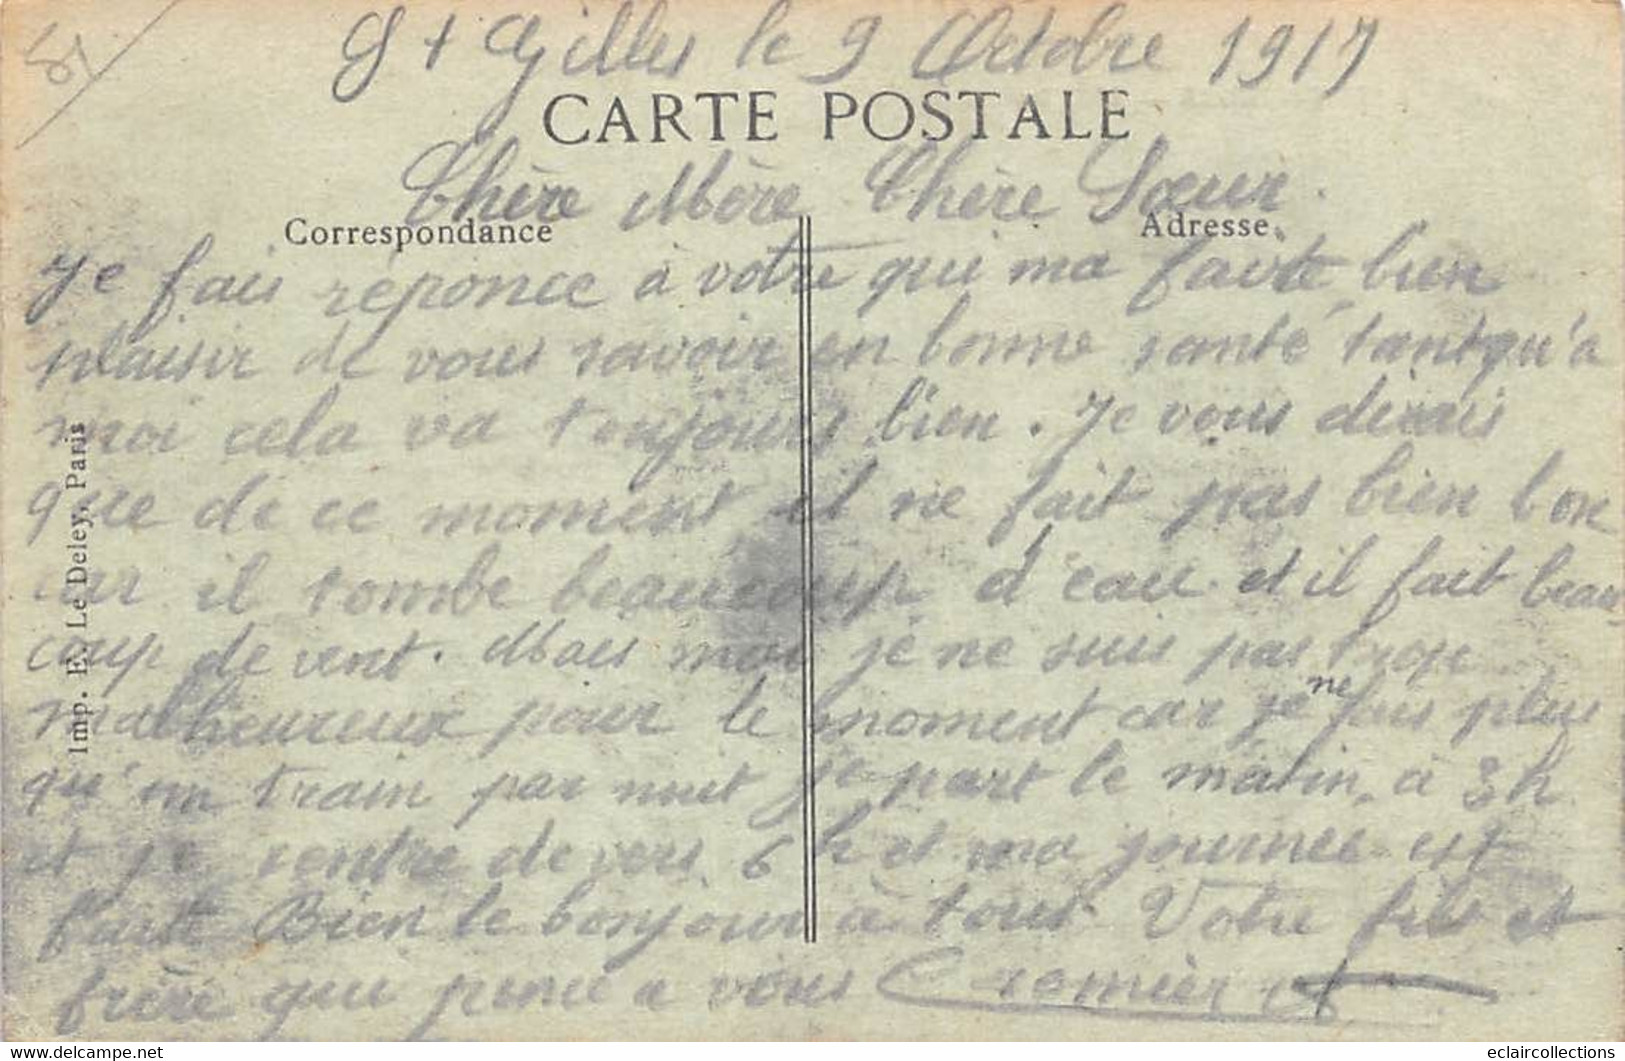 St Gilles le 9 Octobre 1917
CARTE POSTALE
Chère Mère Chère Sœur.
Correspondance
Adresse
Je fais réponce à votre qui ma faite bien
plaisir de vous savoir en bonne santé, tantqu'a
moi cela va toujours bien. Je vous dirais
que de ce moment il ne fait pas bien bon
car il tombe beaucoup d'eau et il fait beau
coup de vent. Mais moi je ne suis pas trop
malheureux pour le moment car je ne fais plus
qu'un train par nuit je part le matin à 3h
et je rentre de vers 6 h et ma journee est
faite Bien le bonjour à tous Votre fils et
frère qui pence a vous Cremier
Imp. E. Le Deley, Paris
eclaircollections
https://www.delcampe.net